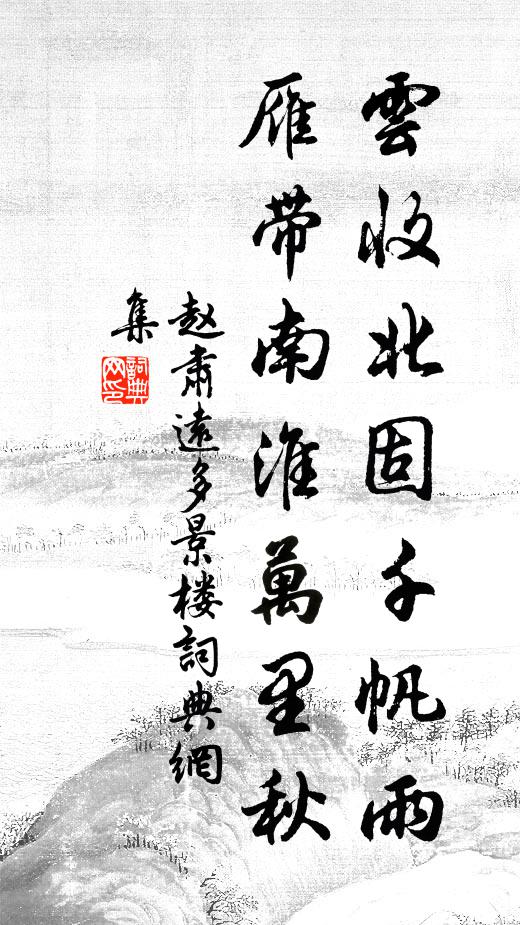 雲收北固千帆雨
雁带南淮萬里秋
赵肅遠多景楼詞典網
集
詞典
网印